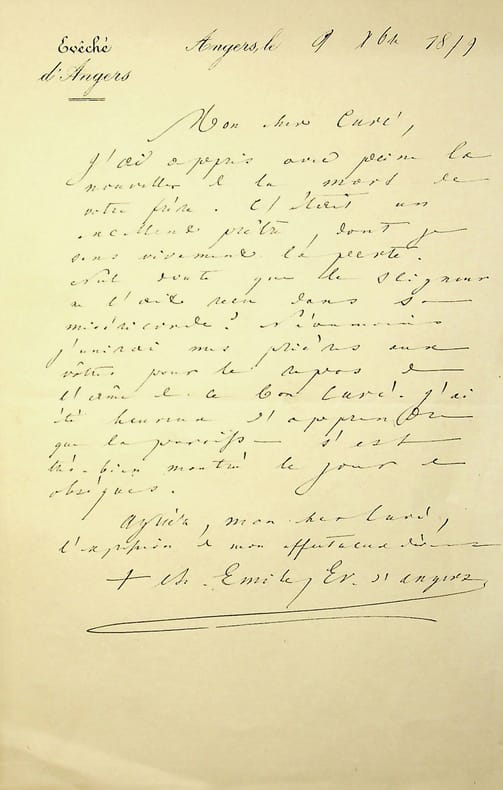 Evêché
d'Angers
Angers, le 9 Xbre 1877
Mon cher Curé,
J'ai appris avec peine la
nouvelle de la mort de
votre frère. C'était un
excellent prêtre, dont je
sens vivement la perte.
Nul doute que le Seigneur
ne l'ait reçu dans sa
miséricorde ! Néanmoins
j'unirai mes prières aux
vôtres pour le repos de
l'âme de ce bon Curé. J'ai
été heureux d'apprendre
que la paroisse s'est
très-bien montrée le jour des
obsèques.
Agréez, mon cher Curé,
l'expression de mon affectueux
+ Ch. Emile, Ev. d'Angers